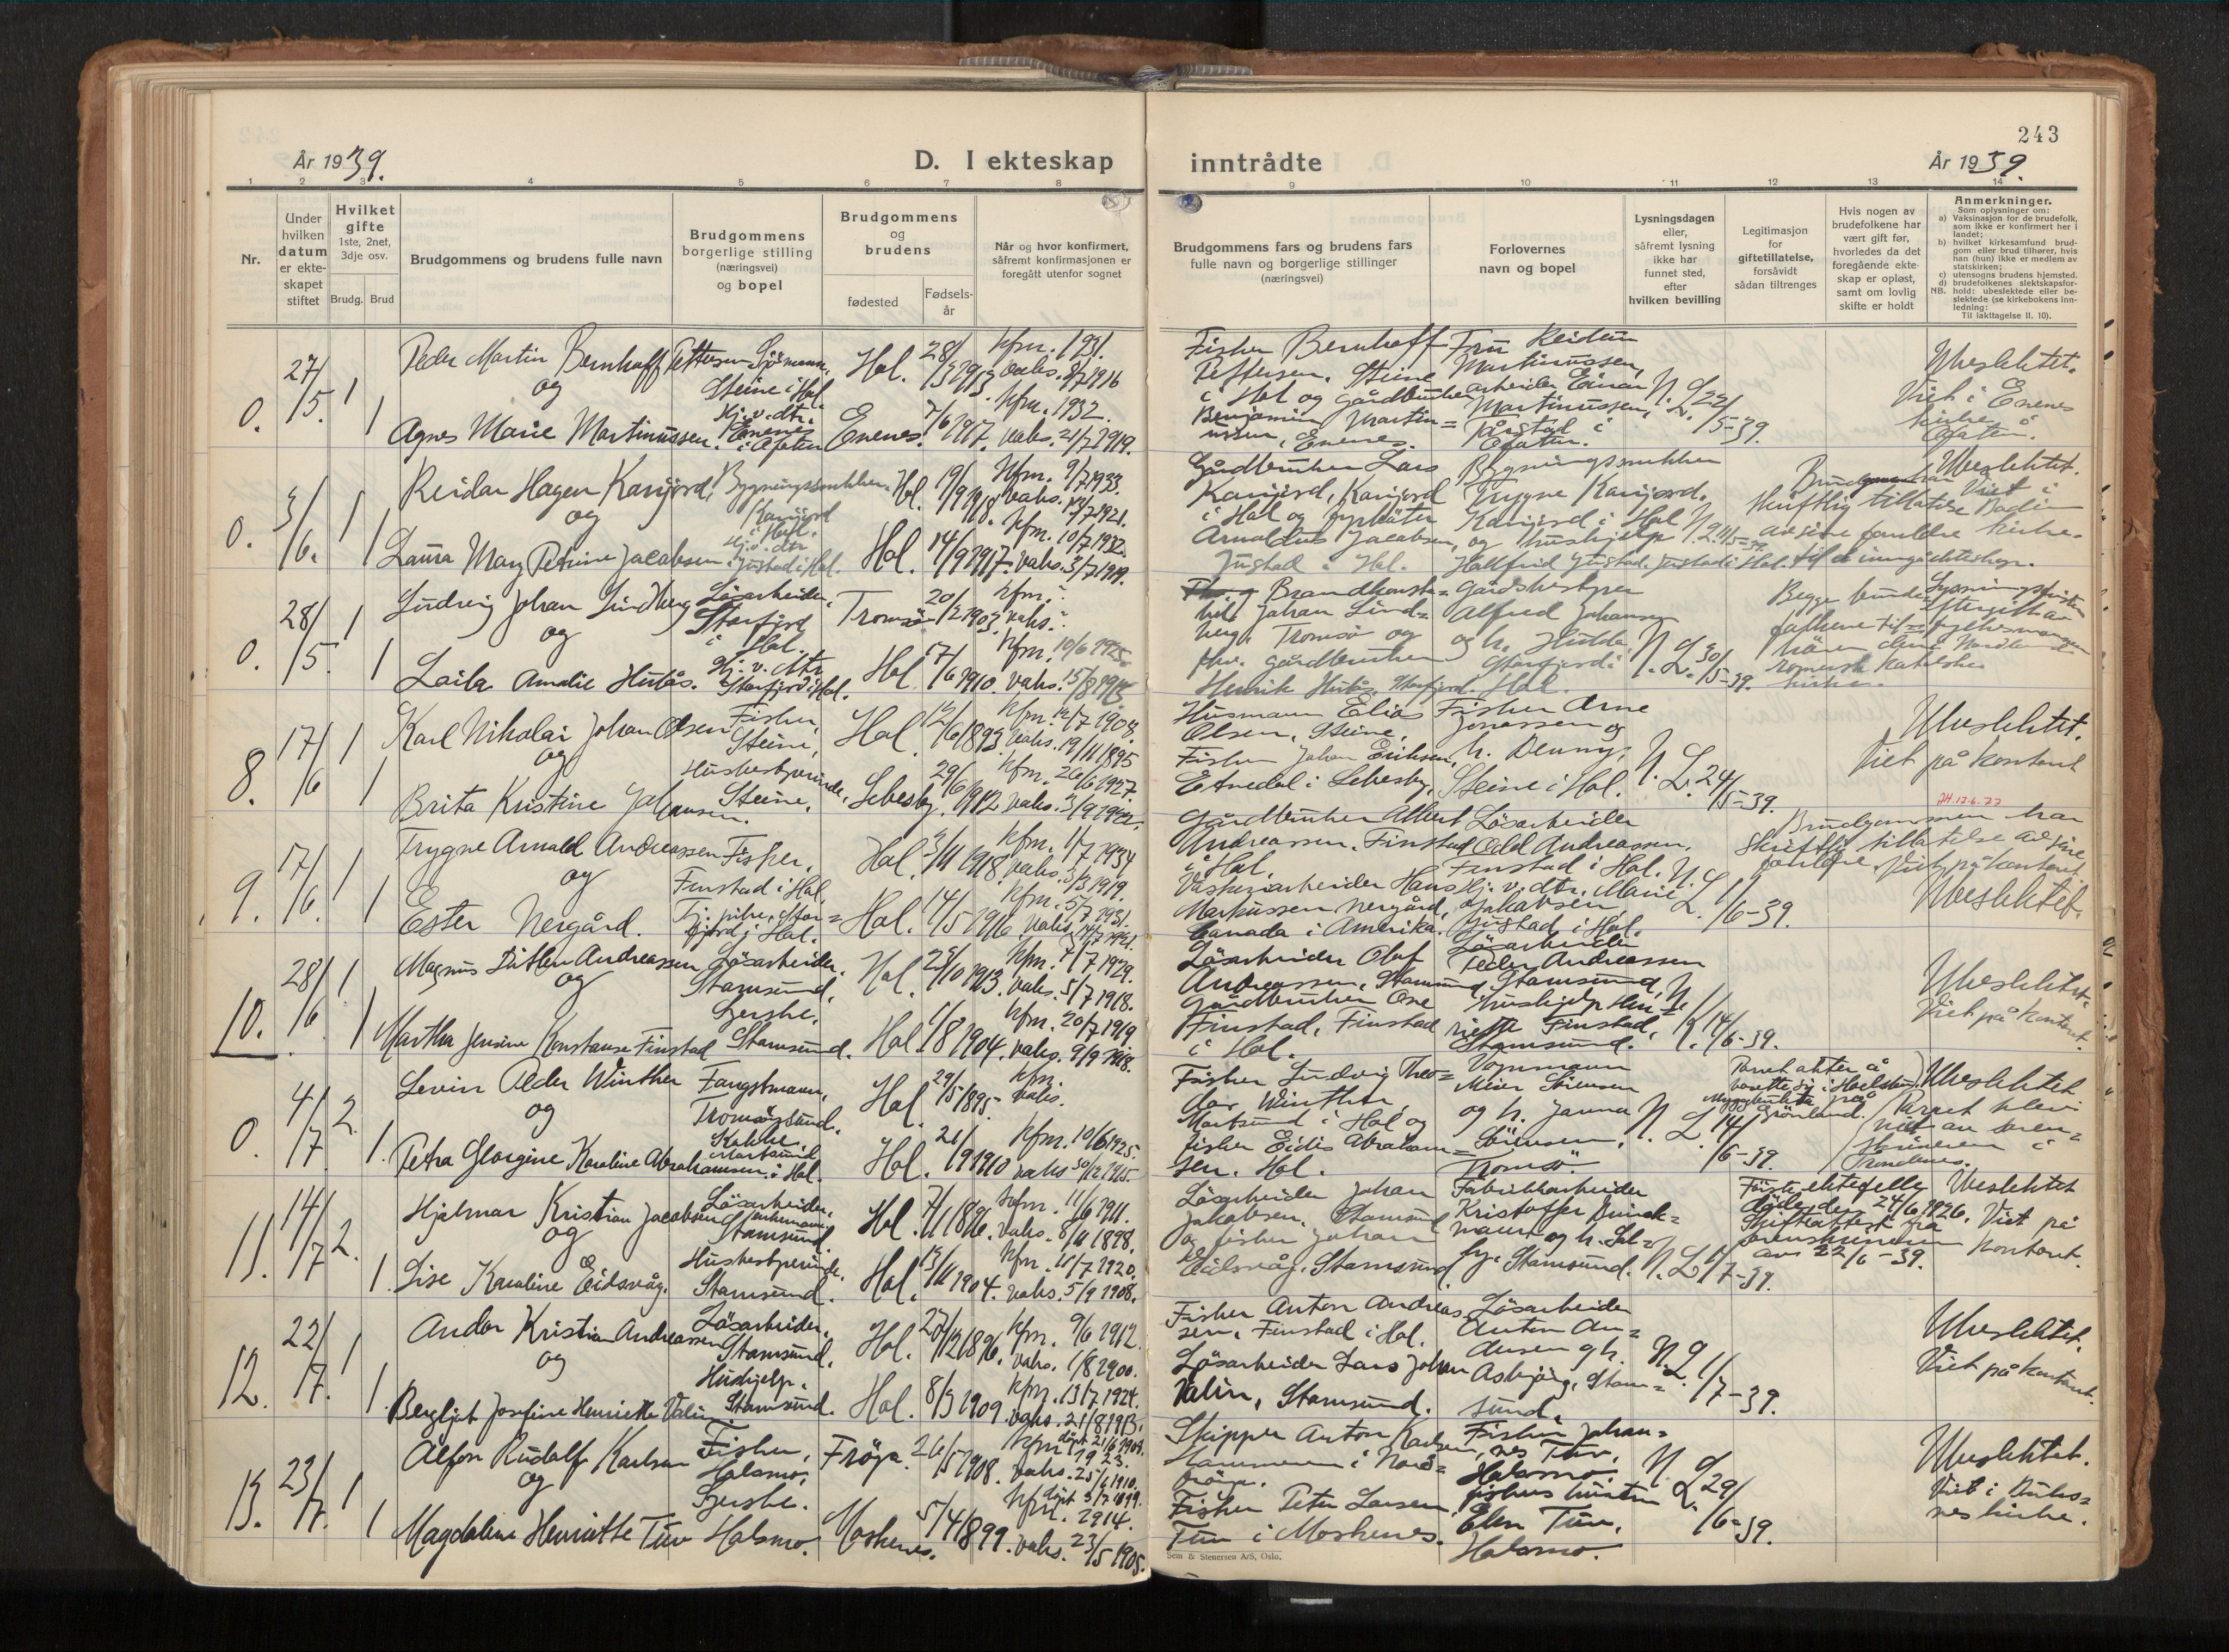 243
År 1939.
D. I ekteskap
inntrådte
År 1939.
1 2 3 4 5 6 7 8 9 10 11 12 13 14
Nr.
Under
hvilken
datum
er ekte-
skapet
stiftet
Hvilket
gifte
1ste, 2net,
3dje osv.
Brudg. Brud
Brudgommens og brudens fulle navn
Brudgommens
borgerlige stilling
(næringsvei)
og bopel
Brudgommens
og
brudens
fødested
Fødsels-
år
Når og hvor konfirmert,
såfremt konfirmasjonen er
foregått utenfor sognet
Brudgommens fars og brudens fars
fulle navn og borgerlige stillinger
(næringsvei)
Forlovernes
navn og bopel
Lysningsdagen
eller,
såfremt lysning
ikke har
funnet sted,
efter
hvilken bevilling
Legitimasjon
for
giftetillatelse,
forsåvidt
sådan tiltrenges
Hvis nogen av
brudefolkene har
vært gift før,
hvorledes da det
foregående ekte-
skap er opløst,
samt om lovlig
skifte er holdt
Anmerkninger.
Som oplysninger om:
a) Vaksinasjon for de brudefolk,
som ikke er konfirmert her i
landet;
b) hvilket kirkesamfund brud-
gom eller brud tilhører, hvis
han (hun) ikke er medlem av
statskirken;
c) utensogns brudens hjemsted.
d) brudefolkenes slektskapsfor-
NB. hold: ubeslektede eller be-
slektede (se kirkebokens inn-
ledning:
Til iakttagelse II. 10).
0. 27/5. 1 1
Peder Martin Bernhoff Pettersen
og
Agnes Marie Martinussen.
Sjömann,
Steine i Hol
Hj. v. dtr.
Enenes
Hol. 28/3 1913.
Enenes. 7/6 1917.
kfm. 1931.
vaks. 8/7 1916
kfm. 1932.
vaks. 21/7 1919.
Fisker Bernhoff
Pettersen, Steine
i Hol og gårdbruker
Benjamin Martin=
ussen, Enenes.
Fru Reidun
Martinussen,
arbeider Einar
Martinussen,
N. L. 22/5-39.
Ubeslektet.
Viet i Enenes
kirke
0. 3/6. 1 1
Reidar Hagen Karijord,
og
Laura Mary Petrine Jacobsen.
Bygningssnekker.
Karijord
i Hol.
Hj. v. dtr
Justad i Hol.
Hol. 19/9 1918.
Hol. 14/9 1917.
kfm. 9/7 1933.
vaks. 13/7 1921.
kfm. 10/7 1932.
vaks. 3/7 1919.
Gårdbruker Lars
Karijord, Karijord
i Hol og
Arnoldus Jacobsen,
Justad i Hol.
Bygningssnekker
Trygve Karijord.
Karijord i Hol
og hushjelp
Hallfrid Justad. Justad i Hol.
Ubeslektet.
Viet i
Bodin
kirke.
skriftlig tillatelse
av sine foreldre
til å inngå ekteskap.
0. 28/5. 1 1
Ludvig Johan Lindberg
og
Laila Amalie Hutås.
Lösarbeider,
Storfjord
i Hol.
Hj. v. dtr.
Storfjord i Hol.
Tromsö 20/2 1903.
Hol 17/6 1910.
kfm. ?
vaks. ?
kfm. 10/6 1925.
vaks. 15/8 1912.
Johan Lind=
berg, Tromsö og
fhv. gårdbruker
Henrik Hutås. Storfjord.
Gårdsbestyrer
Alfred Johansen
og h. Hulda
Storfjord i
Hol.
N. L. 30/5-39.
romersk katolske
kirke.
8. 17/6 1 1
Karl Nikolai Johan Olsen
og
Brita Kristine Johansen.
Fisker,
Steine,
Husbestyrerinde,
Steine,
Hol. 12/6 1893.
Lebesby. 29/6 1912
kfm. 12/7 1908.
vaks. 19/11 1895
kfm. 26/6 1927.
Husmann Elias
Olsen, Steine,
Fisker Johan Eriksen,
i Lebesby,
Fisker Arne
Jonassen og
h. Denny,
Steine i Hol.
N. L. 24/5-39.
Ubeslektet.
Viet på kontoret
9. 17/6. 1 1
Trygve Arnald Andreassen
og
Ester Nergård.
Fisker,
Finstad i Hol,
Tj. pike, Stor=
fjord i Hol.
Hol. 5/11 1918.
Hol. 14/5 1916.
kfm. 1/7 1934
vaks. 3/3 1919.
kfm. 5/7 1931.
Gårdbruker Albert
Andreassen, Finstad
i Hol,
Vaskeriarbeider Hans
Markussen Nergård,
Canada i Amerika.
Lösarbeider
Odd Andreassen,
Finstad i Hol.
Hj. v. dtr. Marie
Jakobsen
Justad i Hol.
N. L. 1/6-39.
Brudgommen har
skriftlig tillatelse av sine
foreldre. Viet på kontoret.
Ubeslektet.
10. 28/6 1 1
Magnus Ditlev Andreassen
og
Martha Jensine Konstanse Finstad
Lösarbeider,
Stamsund,
Stamsund.
Hol. 25/10 1913.
Hol 1/8 1904.
kfm. 7/7 1929.
vaks. 5/7 1918.
kfm. 20/7 1919.
vaks. 9/9 1918.
Lösarbeider Olaf
Andreassen, Stamsund
Gårdbruker Ole
Finstad, Finstad
i Hol.
Lösarbeider
Peder Andreassen
Stamsund,
hushjelp Hen=
riette Finstad,
Stamsund.
N. L. 14/6-39.
Ubeslektet.
Viet på kontoret.
0. 4/7. 2. 1.
Levin Peder Winther
og
Petra Georgine Karoline Abrahamsen.
Fangstmann,
Tromsøysund.
Kokke,
Mortsund
i Hol.
Hol. 29/5 1895.
Hol. 21/9 1910
kfm.
vaks.
kfm. 10/6 1925.
vaks 30/12 1915.
Fisker Ludvig Theo=
dor Winther,
Mortsund i Hol og
fisker Eidis Abraham=
sen. Hol.
Vognmann
Meier Sörensen
og h. Janna
Sörensen,
Tromsö.
N. L. 14/6-39.
Parret akter å
bosette sig i
Myggbukta på
Grönland.
Ubeslektet
Parret blev
viet av soren=
skriveren i
Trondenes.
11. 14/7 2. 1.
Hjalmar Kristian Jacobsen
og
Lise Karoline Eidsvåg.
Lösarbeider,
enkemann,
Stamsund.
Husbestyrerinde.
Stamsund.
Hol. 7/11 1896.
Hol. 13/11 1904.
kfm. 11/6 1911.
vaks. 8/11 1898.
kfm. 18/7 1920.
vaks. 5/9 1908.
Lösarbeider Johan
Jakobsen, Stamsund
og fisker Johan
Eidsvåg, Stamsund
Fabrikkarbeider
Kristoffer Brinck=
mann og h. Sol=
Stamsund.
N. L. 1/7-39.
Förste ektefelle
døde den 24/6 1926.
Skifteattest fra
sorenskriveren
av 22/6-39.
Ubeslektet
Viet på
kontoret.
12. 22/7. 1 1.
Andor Kristian Andreassen
og
Bergljot Josefine Henriette Valin
Lösarbeider,
Stamsund,
Hushjelp,
Stamsund.
Hol. 27/12 1896.
Hol. 8/3 1909.
kfm. 9/6 1912.
vaks. 1/8 1900.
kfm. 13/7 1924.
vaks. 21/8 1913.
Fisker Anton Andreas
sen, Finstad i Hol.
Lösarbeider Lars Johan
Valin, Stamsund.
Lösarbeider
Anton An=
dersen og h.
Asbjörg, Stam=
sund.
N. L. 1/7-39.
Ubeslektet.
Viet på kontoret.
13. 23/7. 1 1
Alfon Rudolf Karlsen
og
Magdaline Henriette Tuv
Fisker,
Holsmo.
Holsmo.
Fröya. 26/5 1908.
Moskenes. 5/4 1899.
döpt 21/6 1908.
kfm 1923.
vaks. 25/6 1910.
döpt 3/7 1899.
kfm. 2914.
vaks. 23/5 1905.
Skipper Anton Karlsen,
Hammeren i Nord=
fröya.
Fisker Peter Larsen
Tuv i Moskenes.
Fisker Johan=
nes Tuv,
Holsmo.
fiskers hustru
Elen Tuv,
Holsmo.
N. L. 29/6-39.
Ubeslektet.
Viet i Buks=
nes kirke.
Sem & Stenersen A/S, Oslo.